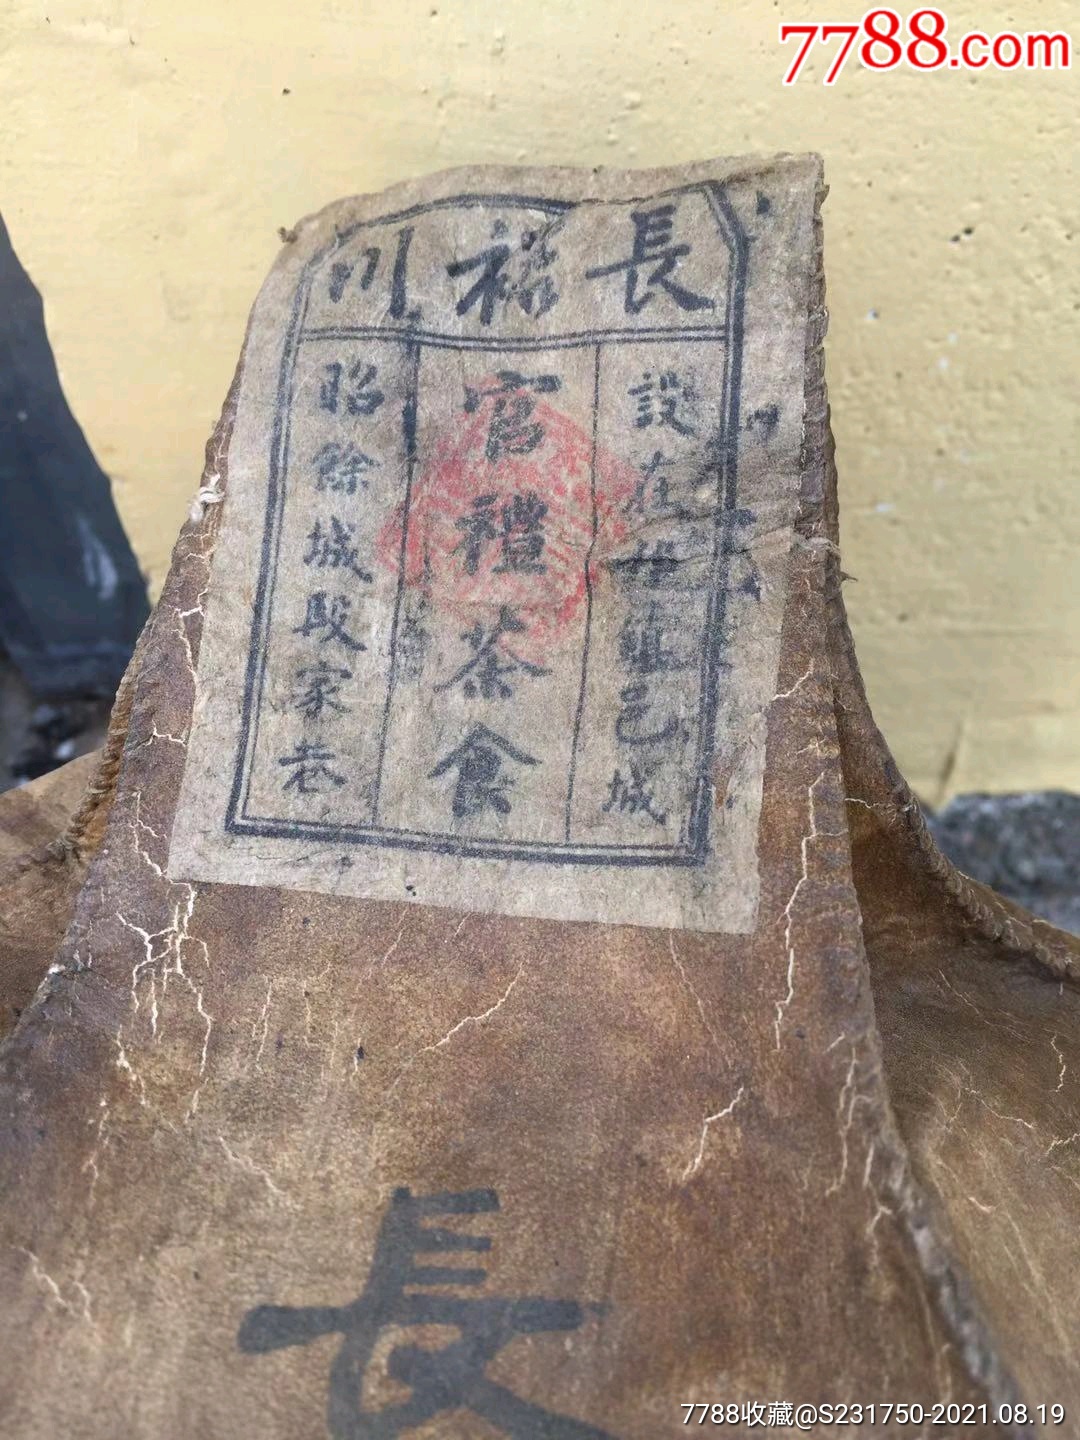 7788.com
長裕川
設在
已城
官禮茶食
昭餘城段家巷
長
7788收藏@S231750-2021.08.19